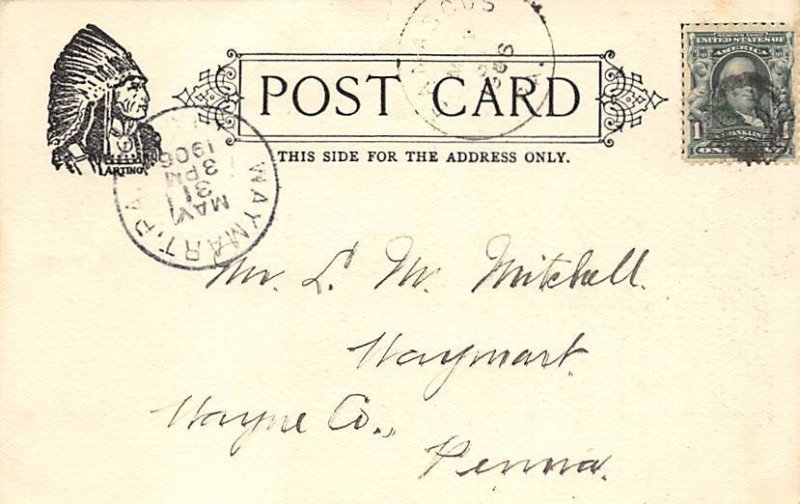 POST CARD
THIS SIDE FOR THE ADDRESS ONLY.
ARTINO
WAYMART, PA.
MAY
31
3 PM
1906
SERIES 1902
UNITED STATES OF
AMERICA
1 1
FRANKLIN
ONE
Mr. L. M. Mitchell.
Waymart.
Wayne Co.,
Penna.